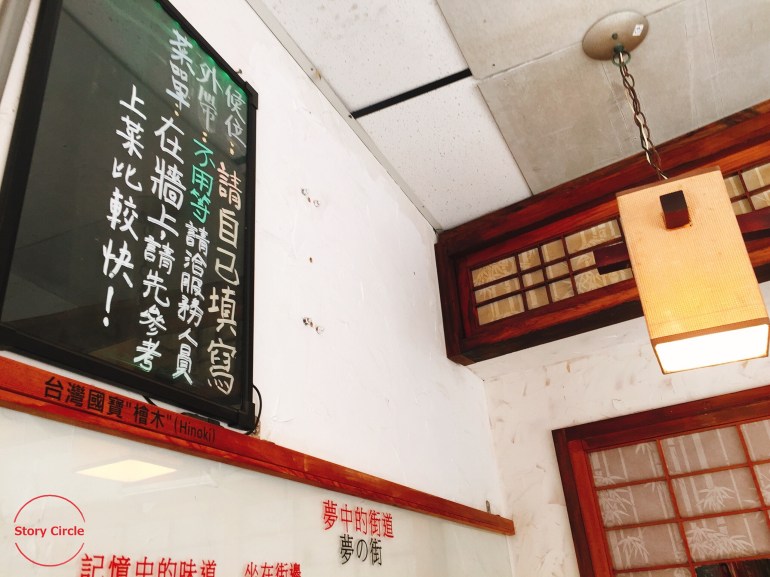 ：請自己填寫
外帶：不用等請洽服務人員
菜單：在牆上，請先參考
上菜比較快！
台灣國寶"檜木"(Hinoki)
夢中的街道
夢の街
記憶中的味道
坐在街邊
Story Circle